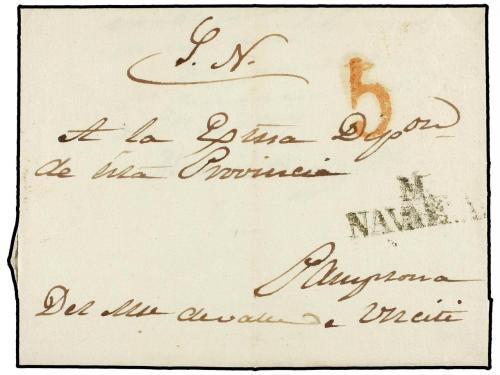 S. N.
5
A la Exma Dipon
de esta Provincia
M
NAVARRA
Pamplona
Del Mte de valle de Unciti